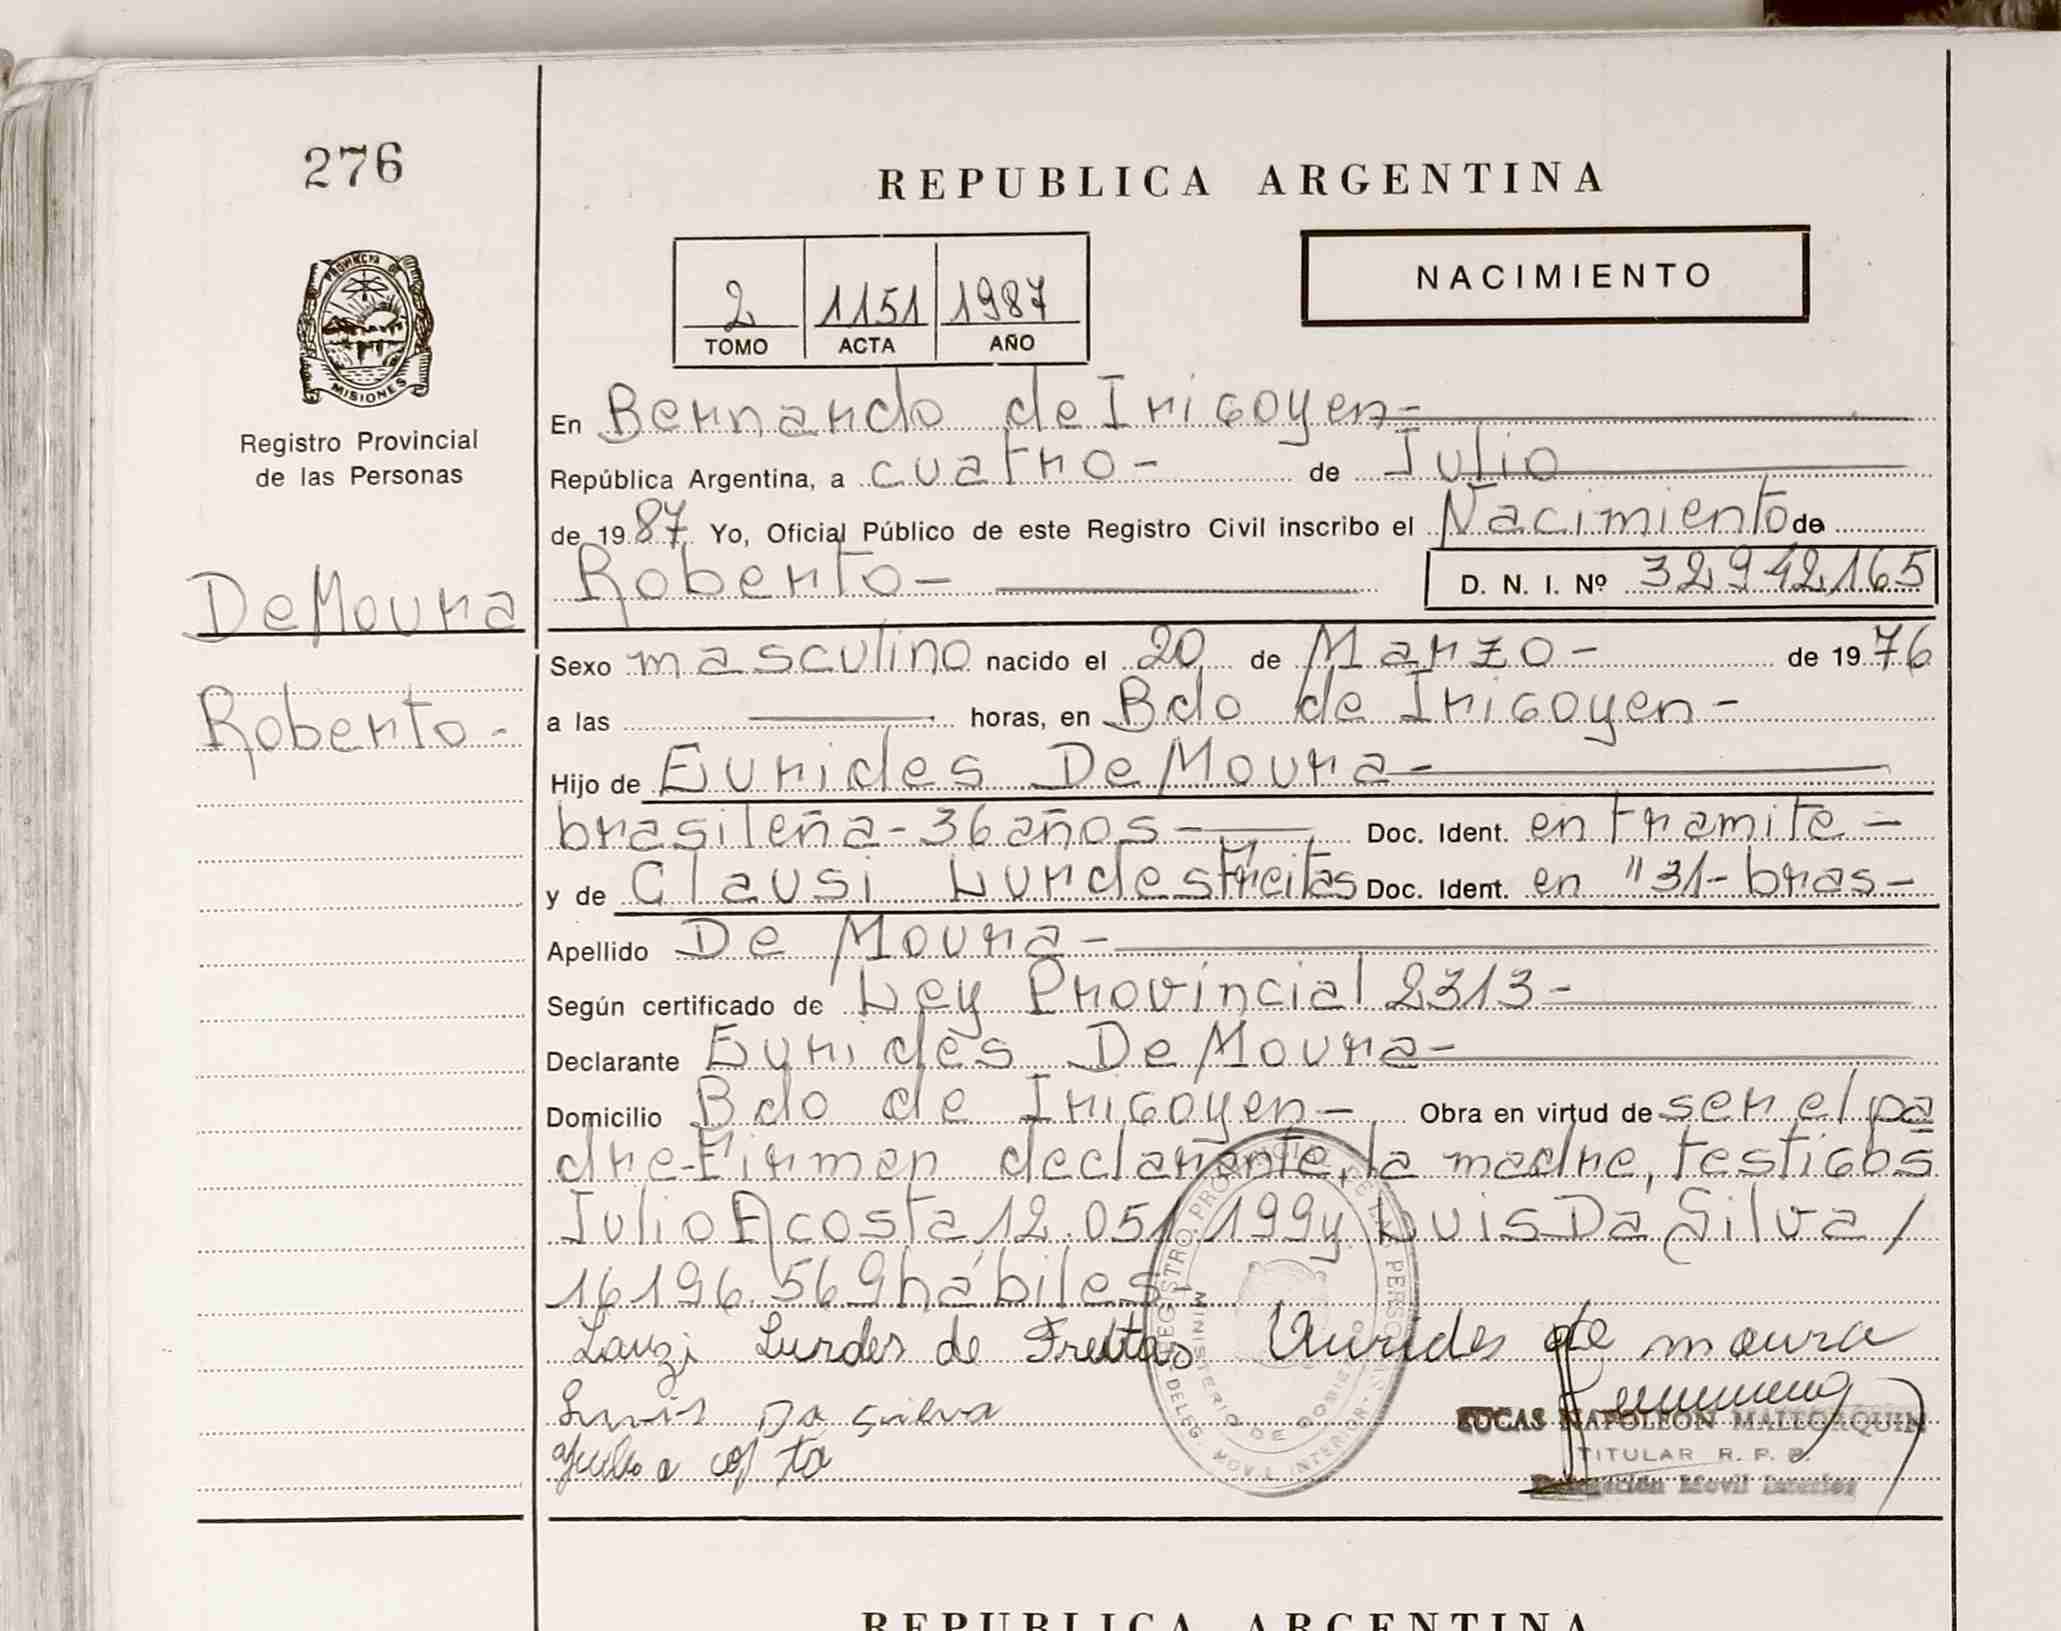 276
REPUBLICA ARGENTINA
NACIMIENTO
2 1151 1987
TOMO ACTA AÑO
PROVINCIA DE
MISIONES
Registro Provincial
de las Personas
De Moura
Roberto-
En Bernardo de Irigoyen-
República Argentina, a cuatro- de Julio
de 1987 Yo, Oficial Público de este Registro Civil inscribo el Nacimiento de
Roberto- D. N. I. Nº 32942165
Sexo masculino nacido el 20 de Marzo- de 1976
a las horas, en Bdo de Irigoyen-
Hijo de Eurides De Moura-
brasileña-36 años- Doc. Ident. en tramite-
y de Clausi Lurdes Freitas Doc. Ident. en "31-bras-
Apellido De Moura-
Según certificado de Ley Provincial 2313-
Declarante Eurides De Moura-
Domicilio Bdo de Irigoyen- Obra en virtud de ser el pa
dre-Firman declarante, la madre, testigos
Julio Acosta 12.051.199 y Luis Da Silva /
16196.569 hábiles
Lauzi Lurdes de Freitas Aurides de moura
Luvis Da Silva
Julio a cos ta
REGISTRO PROVINCIAL DE LAS PERSONAS
MINISTERIO DE GOBIERNO
DELEG. MOVIL INTERIOR
LUCAS NAPOLEON MALLORQUIN
TITULAR R. P. P.
Delegación Movil Interior
REPUBLICA ARGENTINA